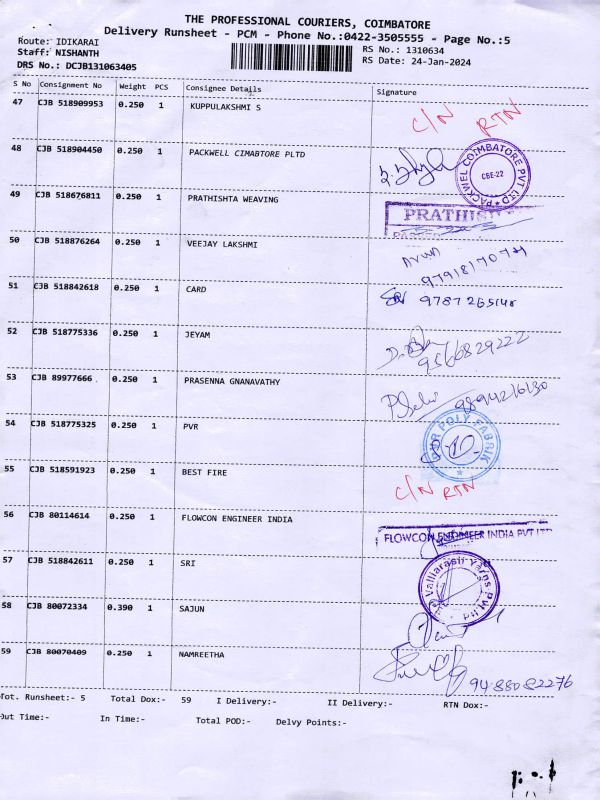 THE PROFESSIONAL COURIERS, COIMBATORE
Delivery Runsheet - PCM - Phone No.:0422-3505555 - Page No.:5
Route: IDIKARAI
RS No.: 1310634
Staff: NISHANTH
RS Date: 24-Jan-2024
DRS No.: DCJB131063405
S No Consignment No Weight PCS Consignee Details Signature
47 CJB 518909953 0.250 1 KUPPULAKSHMI S C/N RTN
48 CJB 518904450 0.250 1 PACKWELL CIMABTORE PLTD
PACKWEL COIMBATORE PVT LTD
CBE-22
49 CJB 518676811 0.250 1 PRATHISHTA WEAVING
PRATHISH
50 CJB 518876264 0.250 1 VEEJAY LAKSHMI
51 CJB 518842618 0.250 1 CARD
52 CJB 518775336 0.250 1 JEYAM
9566829222
53 CJB 89977666 0.250 1 PRASENNA GNANAVATHY
54 CJB 518775325 0.250 1 PVR
POLY FABRIK
55 CJB 518591923 0.250 1 BEST FIRE
C/N RTN
56 CJB 80114614 0.250 1 FLOWCON ENGINEER INDIA
FLOWCON ENGINEER INDIA PVT LTD
57 CJB 518842611 0.250 1 SRI
Valliarasii Yarns Pvt Ltd
58 CJB 80072334 0.390 1 SAJUN
59 CJB 80070409 0.250 1 NAMREETHA
9488082276
Tot. Runsheet:- 5 Total Dox:- 59 I Delivery:- II Delivery:- RTN Dox:-
Out Time:- In Time:- Total POD:- Delvy Points:-